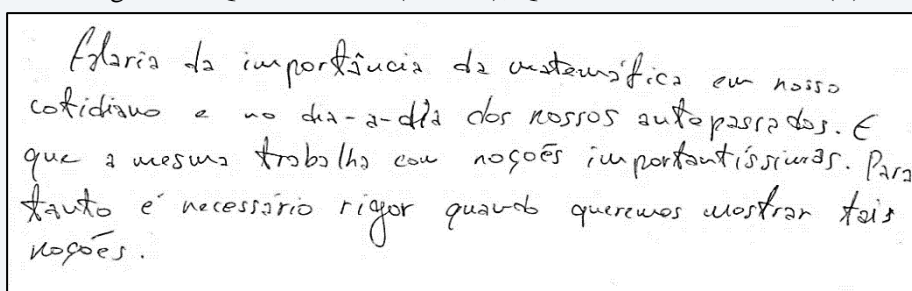 Falaria da importância da matemática em nosso
cotidiano e no dia-a-dia dos nossos antepassados. E
que a mesma trabalha com noções importantíssimas. Para
tanto é necessário rigor quando queremos mostrar tais
noções.